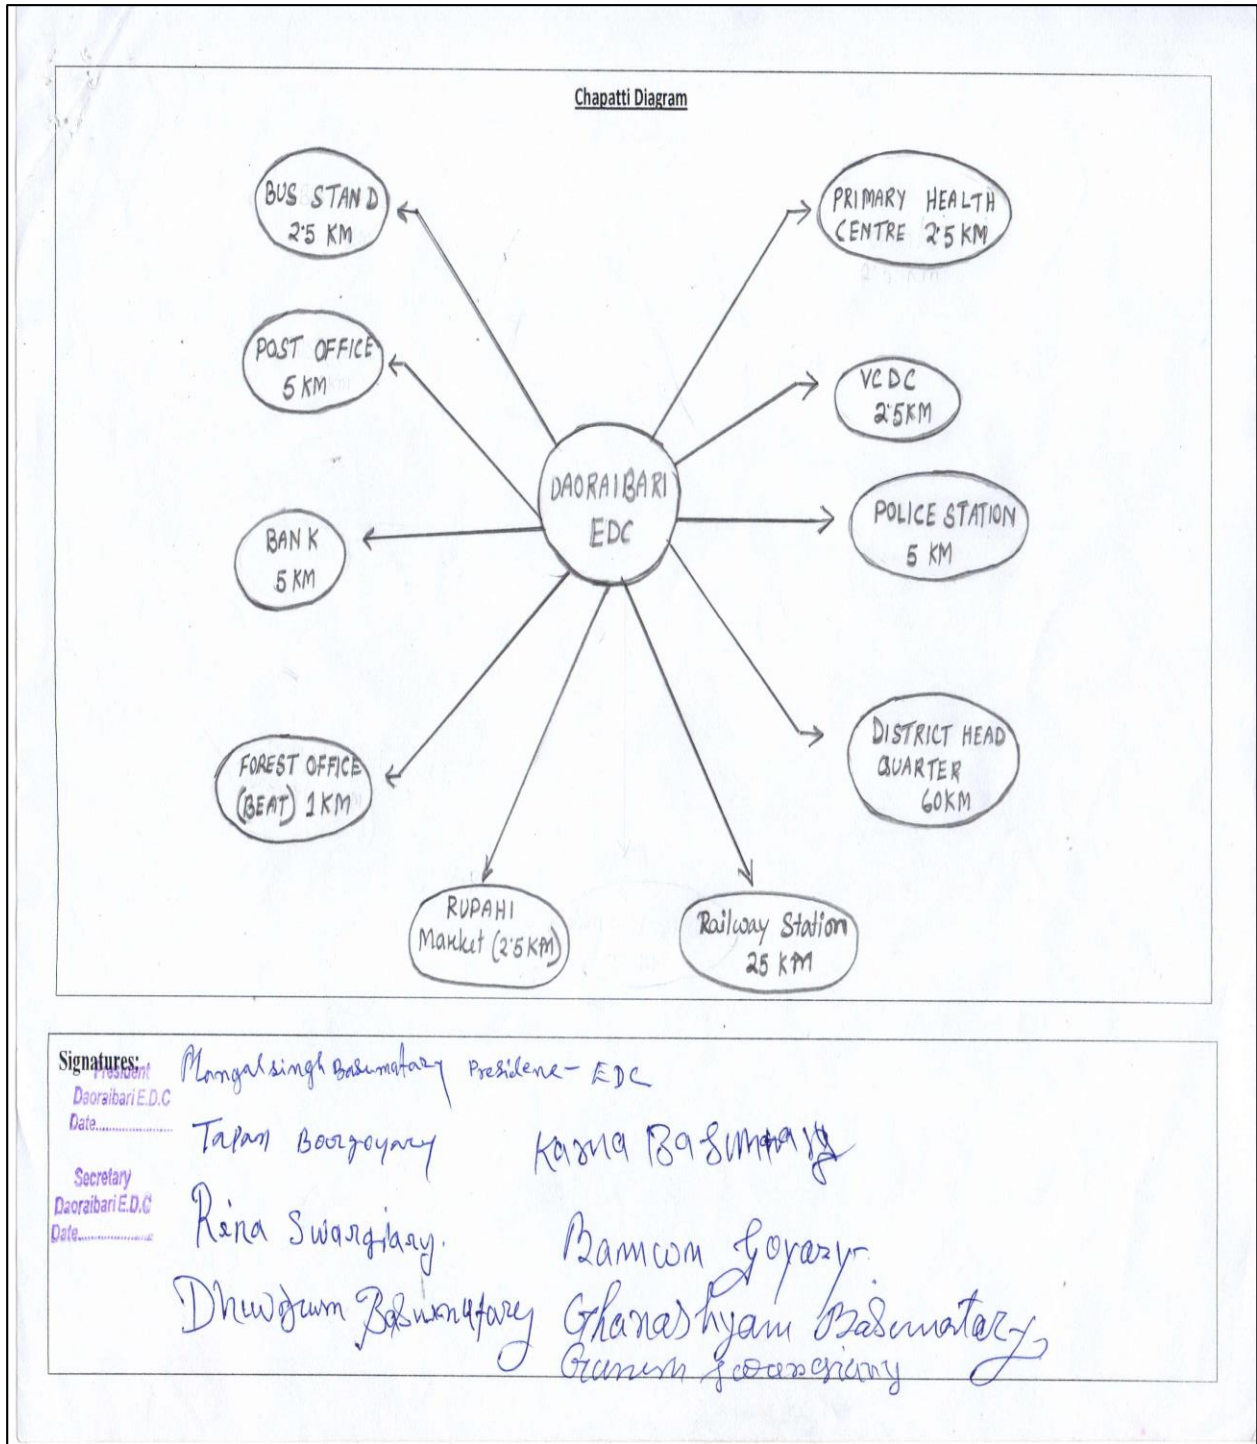 Chapatti Diagram
BUS STAND
2.5 KM
PRIMARY HEALTH
CENTRE 2.5 KM
POST OFFICE
5 KM
VCDC
2.5KM
DAORAIBARI
EDC
BANK
5 KM
POLICE STATION
5 KM
FOREST OFFICE
(BEAT) 1 KM
DISTRICT HEAD
QUARTER
60KM
RUPAHI
Market (2.5 KM)
Railway Station
25 KM
Signatures:
President
Daoraibari E.D.C
Date....................
Mangalsingh Basumatary President - EDC
Tapan Boorgoyary
Karna Basumatary
Secretary
Daoraibari E.D.C
Date....................
Rina Swargiary.
Goyary
Basumatary
Ghanashyam Basumatary